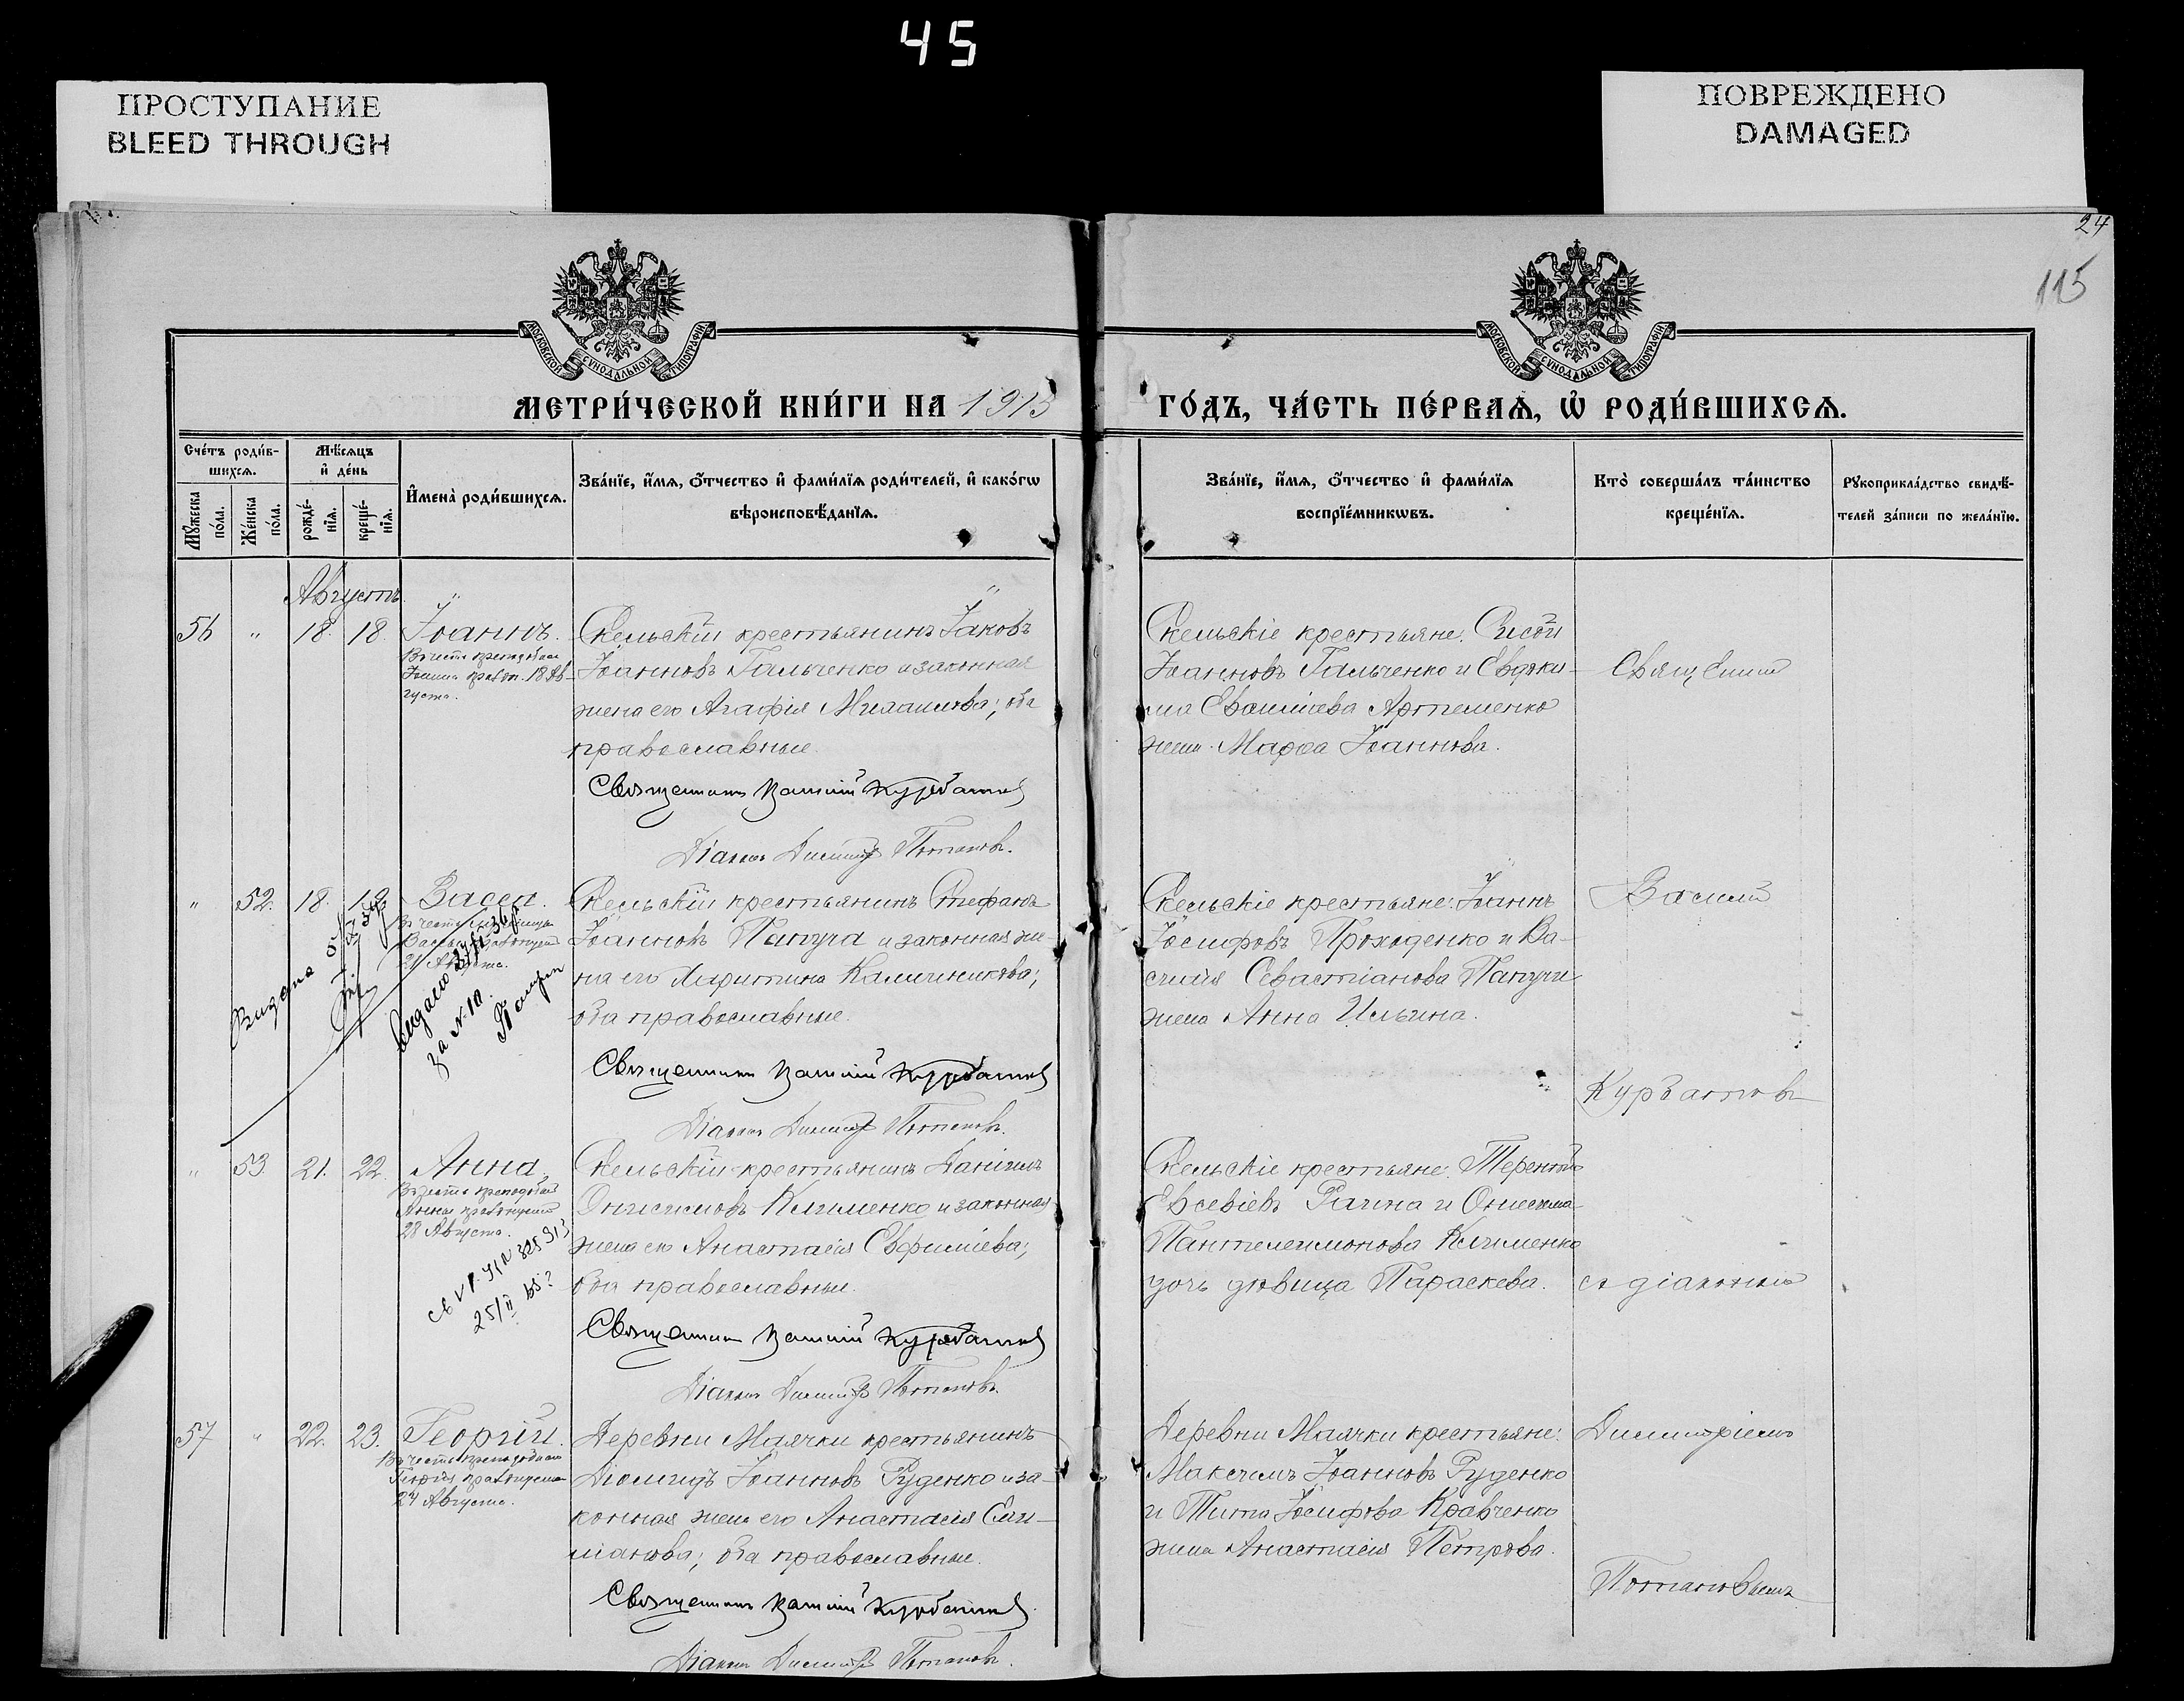 45
ПРОСТУПАНИЕ
BLEED THROUGH
ПОВРЕЖДЕНО
DAMAGED
24
115
МОСКОВСКОЙ СУНОДАЛЬНОЙ ТИПОГРАФІИ
МОСКОВСКОЙ СУНОДАЛЬНОЙ ТИПОГРАФІИ
МЕТРИ́ЧЕСКОЙ КНИ́ГИ НА 1913
ГО́ДЪ, ЧА́СТЬ ПЕ́РВАѦ, Ѡ҆ РОДИ́ВШИХСѦ.
Сче́тъ роди́в-
шихсѧ.
Мꙋ́жеска по́ла.
Же́нска по́ла.
Мѣ́сѧцъ
и҆ де́нь
рожде́-нїѧ.
креще́-нїѧ.
И҆мена̀ роди́вшихсѧ.
Зва́нїе, и҆́мѧ, ѻ҆́тчество и҆ фами́лїѧ роди́телей, и҆ како́гѡ
вѣроисповѣ́данїѧ.
Зва́нїе, и҆́мѧ, ѻ҆́тчество и҆ фами́лїѧ
воспрїе́мникѡвъ.
Кто̀ соверша́лъ та́инство
креще́нїѧ.
Рꙋкоприкла́дство свидѣ́-
телей за́писи по жела́нїю.
Августъ
56 " 18. 18. Іоаннъ.
Въ честь преподобнаго
Іоанна празн. 18 Ав-
густа.
Скельскій крестьянинъ Іаковъ
Іоанновъ Гальченко и законная
жена его Агафія Михаилова; оба
православные.
Священникъ Василій Курбатовъ
Діаконъ Димитрій Потаповъ.
Скельскіе крестьяне: Сисой
Іоанновъ Гальченко и Евдоки-
ма Евѳиміева Артеменко
жена Марѳа Іоаннова.
Священникъ
" 52. 18. 19. Васса.
Въ честь мученицы
Вассы празднуемой
21 Августа.
Выдана
за № 10.
Скельскій крестьянинъ Стефанъ
Іоанновъ Папуча и законная же-
на его Харитина Калинникова;
оба православные.
Священникъ Василій Курбатовъ
Діаконъ Димитрій Потаповъ.
Скельскіе крестьяне: Іоаннъ
Іосифовъ Проходенко и Ва-
силія Севастіанова Папучи
жена Анна Ильина.
Василій
Курбатовъ
" 53 21. 22. Анна.
Въ честь преподобной
Анны празднуемой
28 Августа.
25/II
Скельскій крестьянинъ Даніилъ
Онисимовъ Клименко и законная
жена его Анастасія Евфиміева;
оба православные.
Священникъ Василій Курбатовъ
Діаконъ Димитрій Потаповъ.
Скельскіе крестьяне: Терентій
Евсевіевъ Рагина и Онисима
Пантелеимонова Клименко
дочь дѣвица Параскева.
съ діакономъ
57 " 22. 23. Георгій.
Въ честь преподобнаго
Георгія празднуемаго
24 Августа.
Деревни Маячки крестьянинъ
Діомидъ Іоанновъ Руденко и за-
конная жена его Анастасія Сам-
ланова; оба православные.
Священникъ Василій Курбатовъ
Діаконъ Димитрій Потаповъ.
Деревни Маячки крестьяне:
Максимъ Іоанновъ Руденко
и Тита Іосифова Кравченко
жена Анастасія Петрова.
Димитріемъ
Потаповымъ